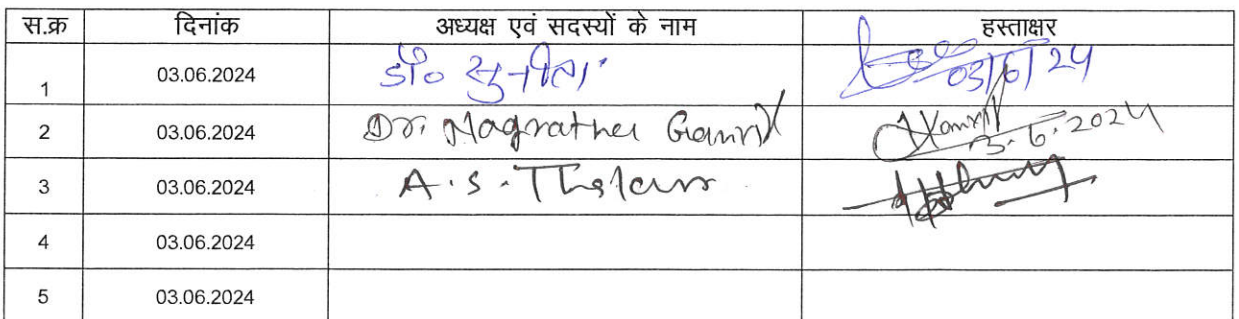 स.क्र दिनांक अध्यक्ष एवं सदस्यों के नाम हस्ताक्षर
1 03.06.2024 डॉ० सुनीता 03/6/24
2 03.06.2024 Dr. Nagratna Ganvir 3.6.2024
3 03.06.2024 A.S.
4 03.06.2024
5 03.06.2024